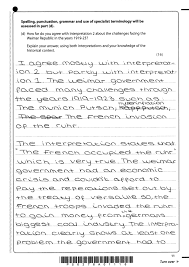 Spelling, punctuation, grammar and use of specialist terminology will be
assessed in part (d).
(d) How far do you agree with Interpretation 2 about the challenges facing the
Weimar Republic in the years 1919-23?
Explain your answer, using both interpretations and your knowledge of the
historical context.
I agree mostly with interpretat-
ion 2 but partly with interpretat-
ion 1. The weimar government
faced many challenges through
the years 1919-1923 such as
The munich Putsch,
The French invasion
of the ruhr.
The interpretation states
The French occupied the ruhr
which is very true. The weimar
government had an economic
crisis and couldn't afford to
Pay the reparations set out by
the treaty of versailles so the
French troops invaded the ruhr
to gain money from germanys
biggest coal industry. The interpretat-
ion clearly shows at least one
problem the government had to
Turn over